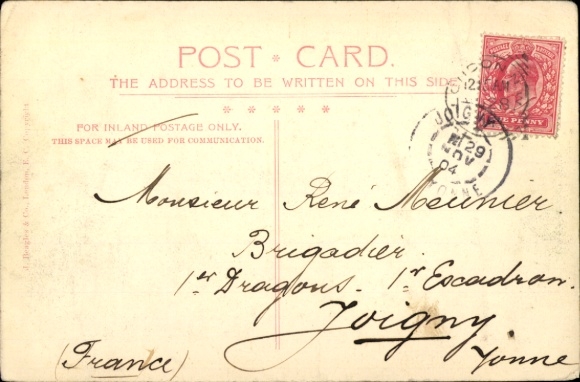 POST CARD.
THE ADDRESS TO BE WRITTEN ON THIS SIDE
FOR INLAND POSTAGE ONLY.
THIS SPACE MAY BE USED FOR COMMUNICATION.
ONE PENNY
JOIGNY
29
NOV
04
YONNE
Monsieur René Meunier
Brigadier
1er Dragons. 1r Escadron.
Joigny
Yonne
(France)